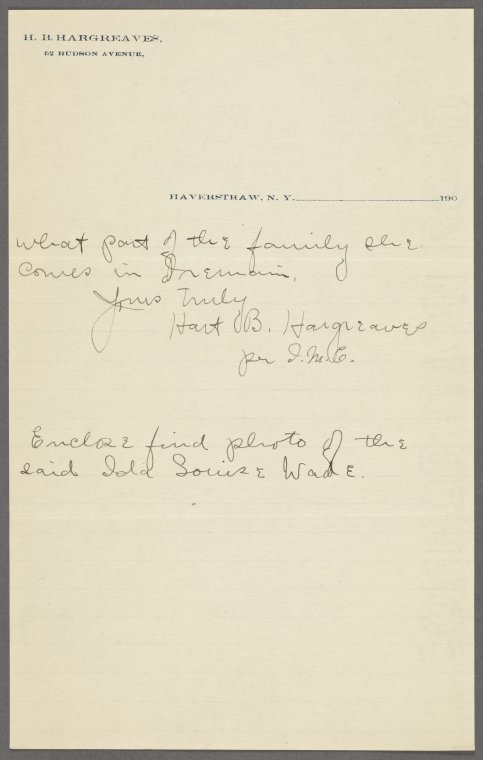 H. B. HARGREAVES,
52 HUDSON AVENUE,
HAVERSTRAW, N. Y. 190
what part of the family she
comes in I remain,
Yours Truly
Hart B. Hargreaves
per I.M.E.
Enclose find photo of the
said Ida Louise Wade.